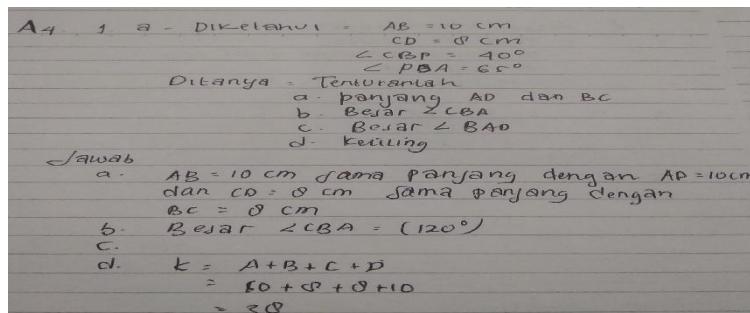 A4 1 a - Diketahui = AB = 10 cm
CD = 8 cm
∠ CBD = 40°
∠ DBA = 65°
Ditanya = Tenturanlah
a. panjang AD dan BC
b. Besar ∠CBA
c. Besar ∠ BAD
d. keliling
Jawab
a. AB = 10 cm sama panjang dengan AD = 10 cm
dan CD = 8 cm sama panjang dengan
BC = 8 cm
b. Besar ∠CBA = (120°)
c.
d. k = A + B + C + D
= 10 + 8 + 8 + 10
= 38